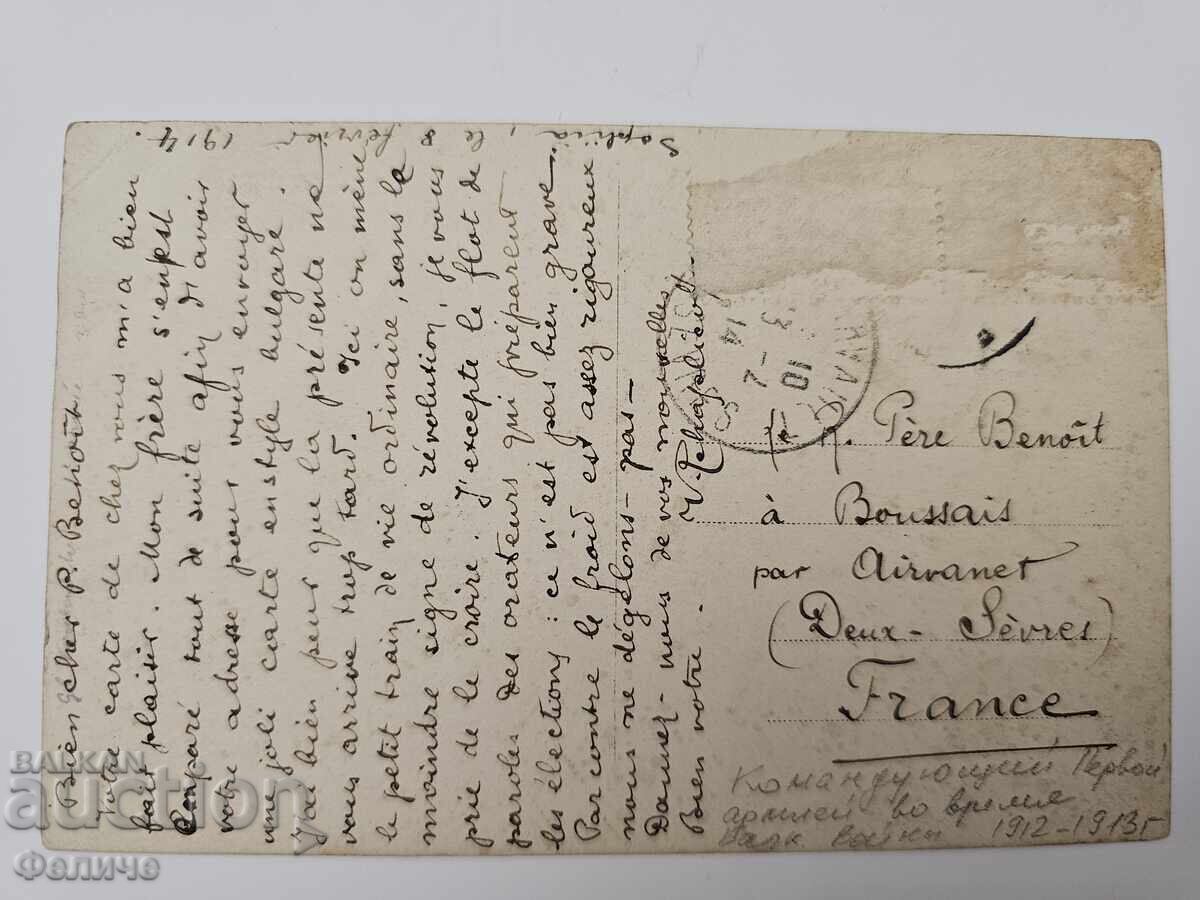 Sophia, le 8 février 1914.
Bien cher P. Benoît.
Votre carte de chez vous m'a bien
fait plaisir. Mon frère s'en est
emparé tout de suite afin d'avoir
votre adresse pour vous envoyer
une joli carte en style bulgare.
J'ai bien peur que la présente ne
vous arrive trop tard. Ici on mène
le petit train de vie ordinaire, sans la
moindre signe de révolution, je vous
prie de le croire. J'excepte le flot de
paroles des orateurs qui préparent
les élections : ce n'est pas bien grave.
Par contre le froid est assez rigoureux
nous ne dégelons - pas -
Donnez - nous de vos nouvelles
Bien votre.
10
7 - 3
14
P. Père Benoît
à Boussais
par Airvanet
(Deux - Sèvres)
France
Командующий Первой
армией во время
Балк войны 1912-1913г
BALKAN
auction
Феличе